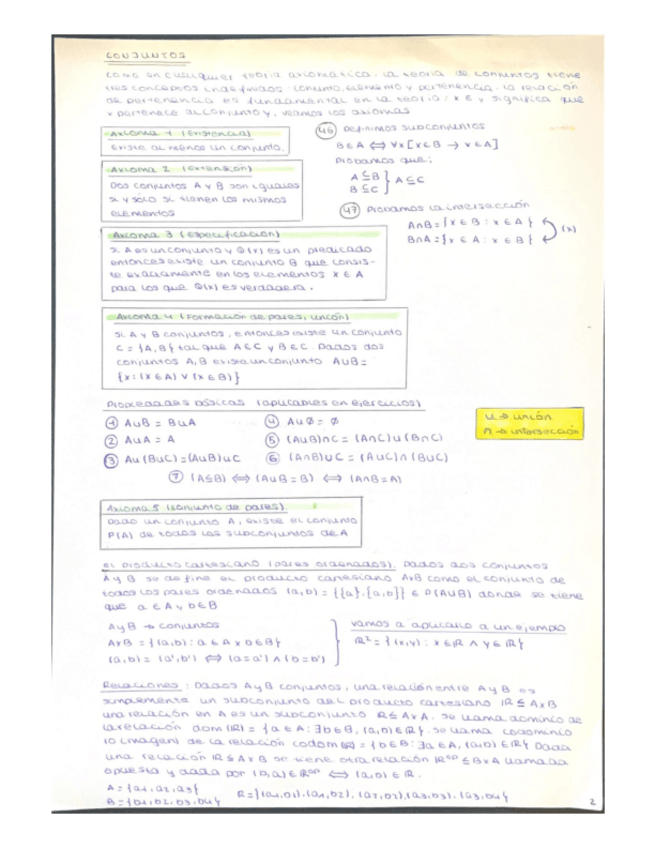 CONJUNTOS
Como en cualquier teoría axiomática, la teoría de conjuntos tiene
tres conceptos indefinidos: conjunto, elemento y pertenencia. La relación
de pertenencia es fundamental en la teoría: x ∈ y significa que
x pertenece al conjunto y. Veamos los axiomas
Axioma 1 (Existencia)
Existe al menos un conjunto.
Axioma 2 (extensión)
Dos conjuntos A y B son iguales
si y sólo si tienen los mismos
elementos
46 Definimos subconjuntos
B ⊆ A ⟺ ∀x [x ∈ B → x ∈ A]
Probamos que:
A ⊆ B
B ⊆ C } A ⊆ C
47 Probamos la intersección
A∩B = {x ∈ B : x ∈ A}
B∩A = {x ∈ A : x ∈ B} (x)
Axioma 3 (especificación)
Si A es un conjunto y Q(x) es un predicado
entonces existe un conjunto B que consis-
te exactamente en los elementos x ∈ A
para los que Q(x) es verdadera.
Axioma 4 (Formación de pares, unión)
Si A y B conjuntos, entonces existe un conjunto
C = {A, B} tal que A ∈ C y B ∈ C. Dados dos
conjuntos A, B existe un conjunto A∪B =
{x : (x ∈ A) ∨ (x ∈ B)}
Propiedades básicas (aplicables en ejercicios)
1 A∪B = B∪A
4 A∪∅ = ∅
2 A∪A = A
5 (A∪B)∩C = (A∩C)∪(B∩C)
3 A∪(B∪C) = (A∪B)∪C
6 (A∩B)∪C = (A∪C)∩(B∪C)
7 (A⊆B) ⟺ (A∪B = B) ⟺ (A∩B = A)
U → unión
∩ → intersección
Axioma 5 (conjunto de partes).
Dado un conjunto A, existe el conjunto
P(A) de todos los subconjuntos de A
El producto cartesiano (pares ordenados). Dados dos conjuntos
A y B se define el producto cartesiano AxB como el conjunto de
todos los pares ordenados (a,b) = {{a},{a,b}} ∈ P(A∪B) donde se tiene
que a ∈ A y b ∈ B
A y B → conjuntos
AxB = {(a,b) : a ∈ A x b ∈ B}
(a,b) = (a',b') ⟺ (a=a') ∧ (b=b')
vamos a aplicarlo a un ejemplo
ℝ² = {(x,y) : x ∈ ℝ ∧ y ∈ ℝ}
Relaciones: Dados A y B conjuntos, una relación entre A y B es
simplemente un subconjunto del producto cartesiano ℝ ⊆ AxB
una relación en A es un subconjunto ℝ ⊆ AxA. Se llama dominio de
la relación dom(ℝ) = {a ∈ A : ∃b ∈ B, (a,b) ∈ ℝ}. Se llama codominio
(o imagen) de la relación codom(ℝ) = {b ∈ B : ∃a ∈ A, (a,b) ∈ ℝ} Dada
una relación ℝ ⊆ AxB se tiene otra relación ℝᵒᵖ ⊆ BxA llamada
opuesta y dada por (b,a) ∈ ℝᵒᵖ ⟺ (a,b) ∈ ℝ.
A = {a1, a2, a3}
B = {b1, b2, b3, b4}
R = {(a1,b1), (a1,b2), (a2,b2), (a3,b3), (a3,b4)}
2